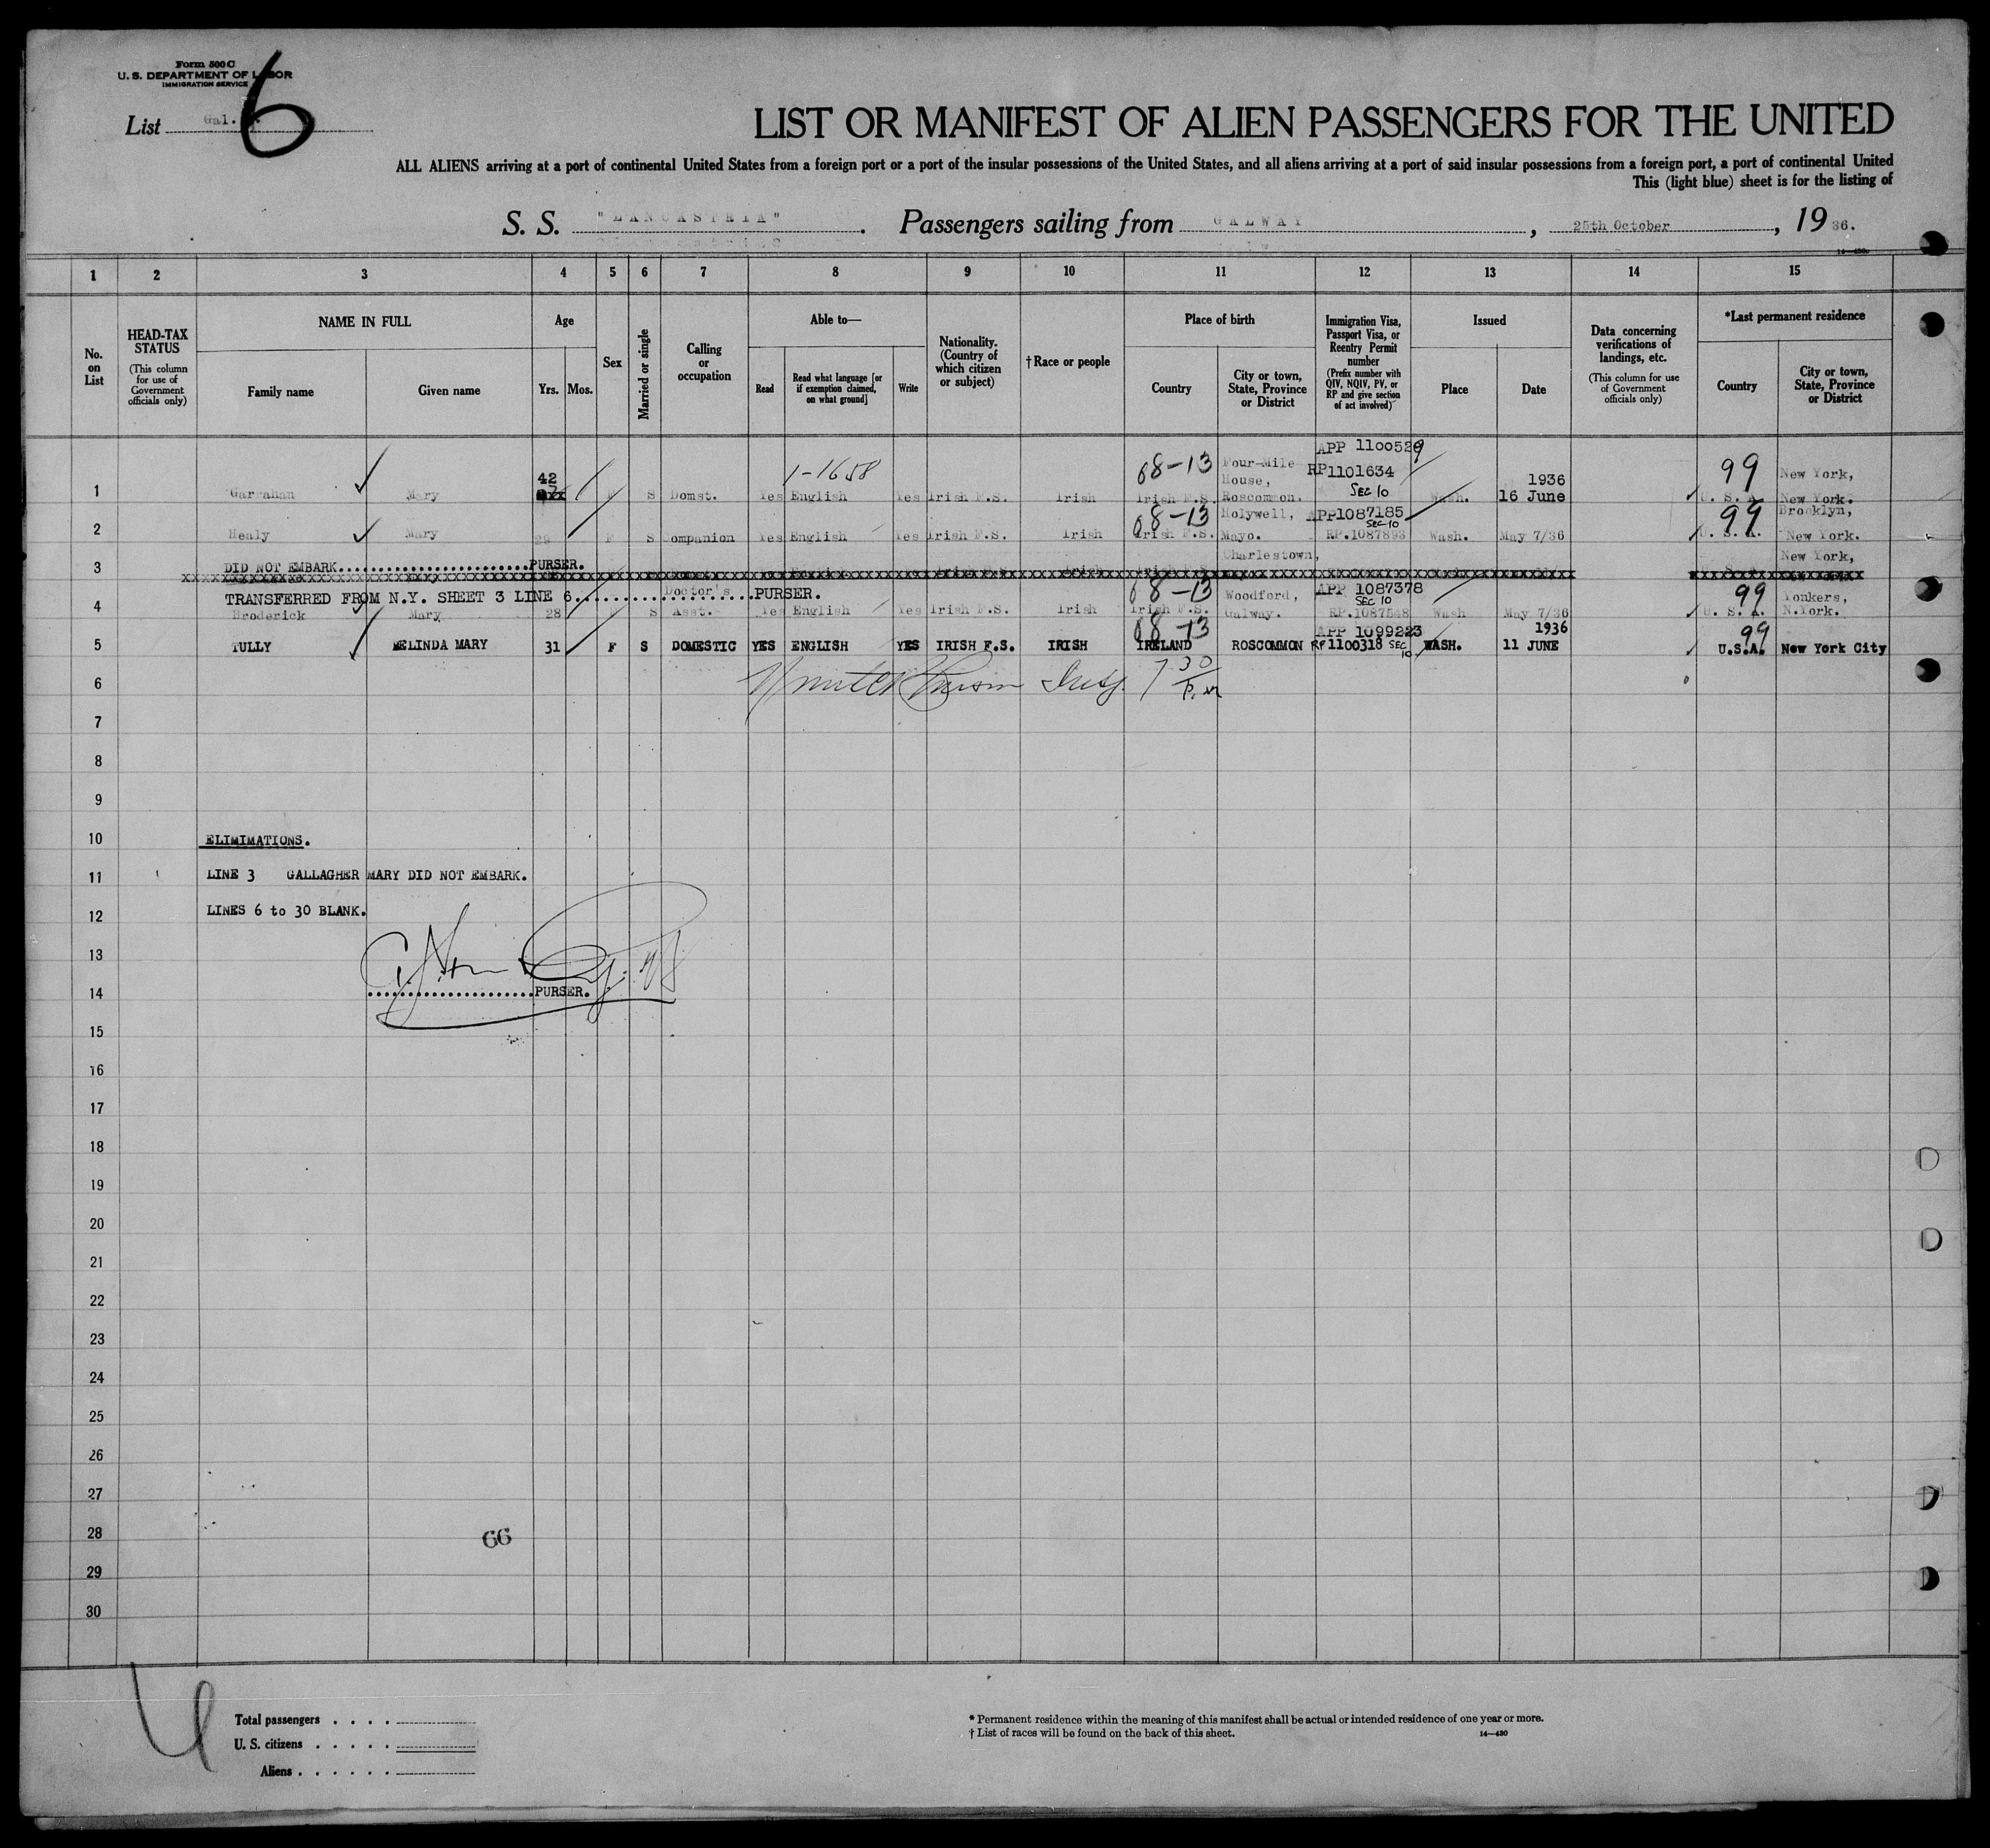 Form 500 C
U. S. DEPARTMENT OF LABOR
IMMIGRATION SERVICE
List Gal. 6
LIST OR MANIFEST OF ALIEN PASSENGERS FOR THE UNITED
ALL ALIENS arriving at a port of continental United States from a foreign port or a port of the insular possessions of the United States, and all aliens arriving at a port of said insular possessions from a foreign port, a port of continental United
This (light blue) sheet is for the listing of
S. S. "LANCASTRIA". Passengers sailing from GALWAY, 25th October, 1936.
14—430
1 2 3 4 5 6 7 8 9 10 11 12 13 14 15
No. on List
HEAD-TAX STATUS
(This column for use of Government officials only)
NAME IN FULL
Family name
Given name
Age
Yrs. Mos.
Sex
Married or single
Calling or occupation
Able to—
Read
Read what language [or if exemption claimed, on what ground]
Write
Nationality. (Country of which citizen or subject)
†Race or people
Place of birth
Country
City or town, State, Province or District
Immigration Visa, Passport Visa, or Reentry Permit number
(Prefix number with QIV, NQIV, PV, or RP and give section of act involved)
Issued
Place
Date
Data concerning verifications of landings, etc.
(This column for use of Government officials only)
*Last permanent residence
Country
City or town, State, Province or District
1 Garrahan Mary 42 F S Domst. Yes 1-1658 English Yes Irish F.S. Irish 08-13 Irish F.S. Four-Mile House, Roscommon. APP 1100529 RP1101634 SEC 10 Wash. 1936 16 June 99 U. S. A. New York, New York.
2 Healy Mary 29 F S Companion Yes English Yes Irish F.S. Irish 08-13 Irish F.S. Holywell, Mayo. APP1087185 SEC 10 RP.1087893 Wash. May 7/36 99 U. S. A. Brooklyn, New York.
3 DID NOT EMBARK......................PURSER. Charlestown, New York,
TRANSFERRED FROM N.Y. SHEET 3 LINE 6....................PURSER.
4 Broderick Mary 28 F S Doctor's Asst. Yes English Yes Irish F.S. Irish 08-13 Irish F.S. Woodford, Galway. APP 1087378 SEC 10 RP.1087548 Wash May 7/36 99 U. S. A. Yonkers, N.York.
5 TULLY MELINDA MARY 31 F S DOMESTIC YES ENGLISH YES IRISH F.S. IRISH 08-13 IRELAND ROSCOMMON APP 1099223 RP1100318 SEC 10 WASH. 1936 11 JUNE 99 U.S.A. New York City
6 7 30 p.m
7
8
9
10 ELIMIMATIONS.
11 LINE 3 GALLAGHER MARY DID NOT EMBARK.
12 LINES 6 to 30 BLANK.
13
14 ....................PURSER.
15
16
17
18
19
20
21
22
23
24
25
26
27
28 66
29
30
Total passengers . . . .
U. S. citizens . . . . .
Aliens . . . . . .
* Permanent residence within the meaning of this manifest shall be actual or intended residence of one year or more.
† List of races will be found on the back of this sheet. 14—430